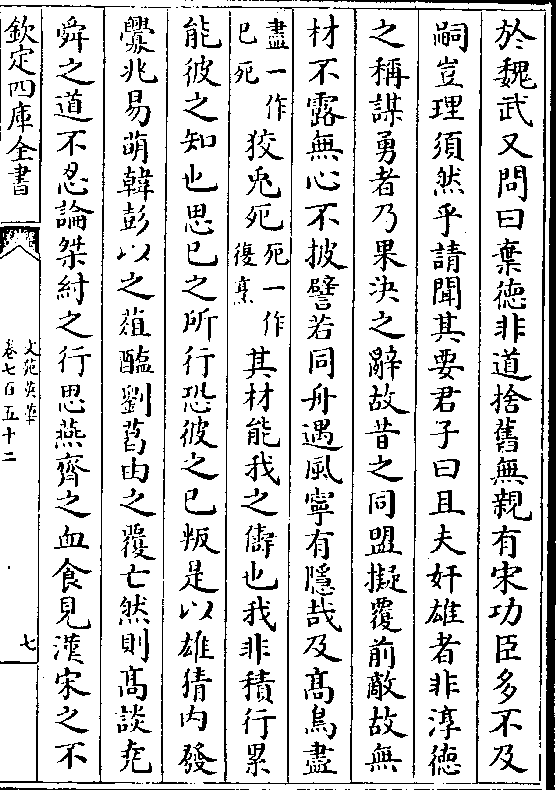 於魏武又問曰棄德非道捨舊無親有宋功臣多不及
嗣豈理須然乎請聞其要君子曰且夫奸雄者非淳德
之稱謀勇者乃果決之辭故昔之同盟擬覆前敵故無
材不露無心不披譬若同舟遇風寧有隱哉及髙鳥盡
盡一作已死狡兎死死一作復烹其材能我之儔也我非積行累
能彼之知也思已之所行恐彼之已叛是以雄猜内發
釁兆易萌韓彭以之葅醢劉葛由之覆亡然則髙談堯
舜之道不忍論桀紂之行思燕齊之血食見漢宋之不
欽定四庫全書
文苑英華
卷七百五十二
七